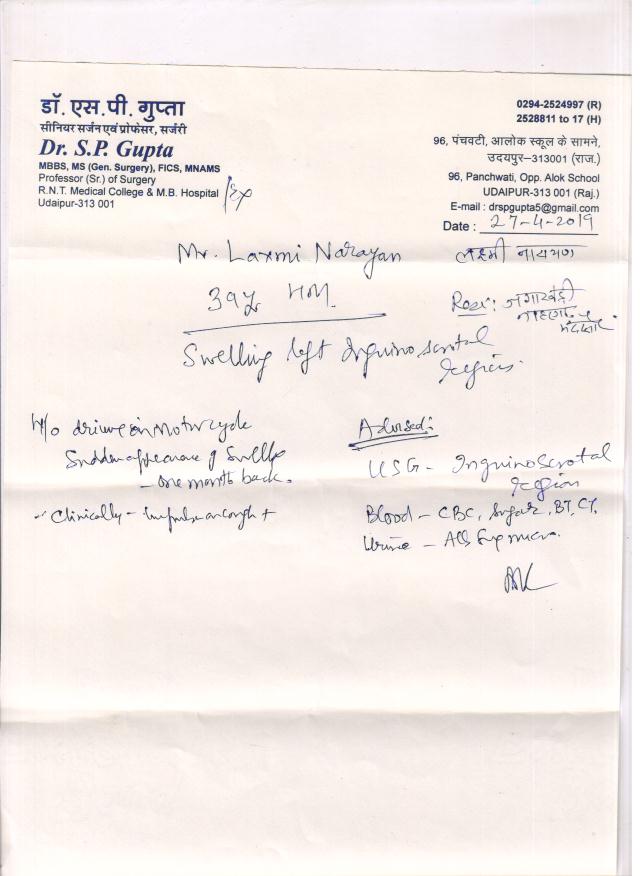 डॉ. एस.पी. गुप्ता
सीनियर सर्जन एवं प्रोफेसर, सर्जरी
Dr. S.P. Gupta
MBBS, MS (Gen. Surgery), FICS, MNAMS
Professor (Sr.) of Surgery
R.N.T. Medical College & M.B. Hospital
Udaipur-313 001
0294-2524997 (R)
2528811 to 17 (H)
96, पंचवटी, आलोक स्कूल के सामने,
उदयपुर–313001 (राज.)
96, Panchwati, Opp. Alok School
UDAIPUR-313 001 (Raj.)
E-mail : drspgupta5@gmail.com
Date : 27-4-2019
Mr. Laxmi Narayan
लक्ष्मी नारायण
39y HM.
Swelling left Inguinoscrotal
region.
H/o driving on Motorcycle
Sudden appearance of Swelling
– one month back.
Clinically – Impulse on cough +
Advised:
USG – Inguinoscrotal
region
Blood – CBC, Sugar, BT, CT.
Urine –